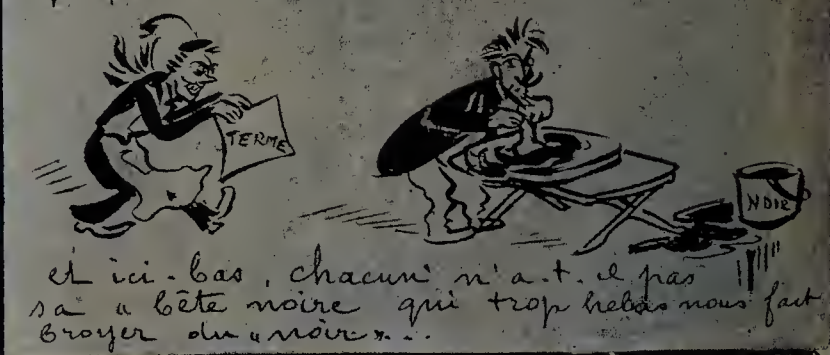 TERME
NOIR
et ici-bas, chacun n'a-t-il pas
sa "bête noire qui trop hélas nous fait
broyer du "noir"...